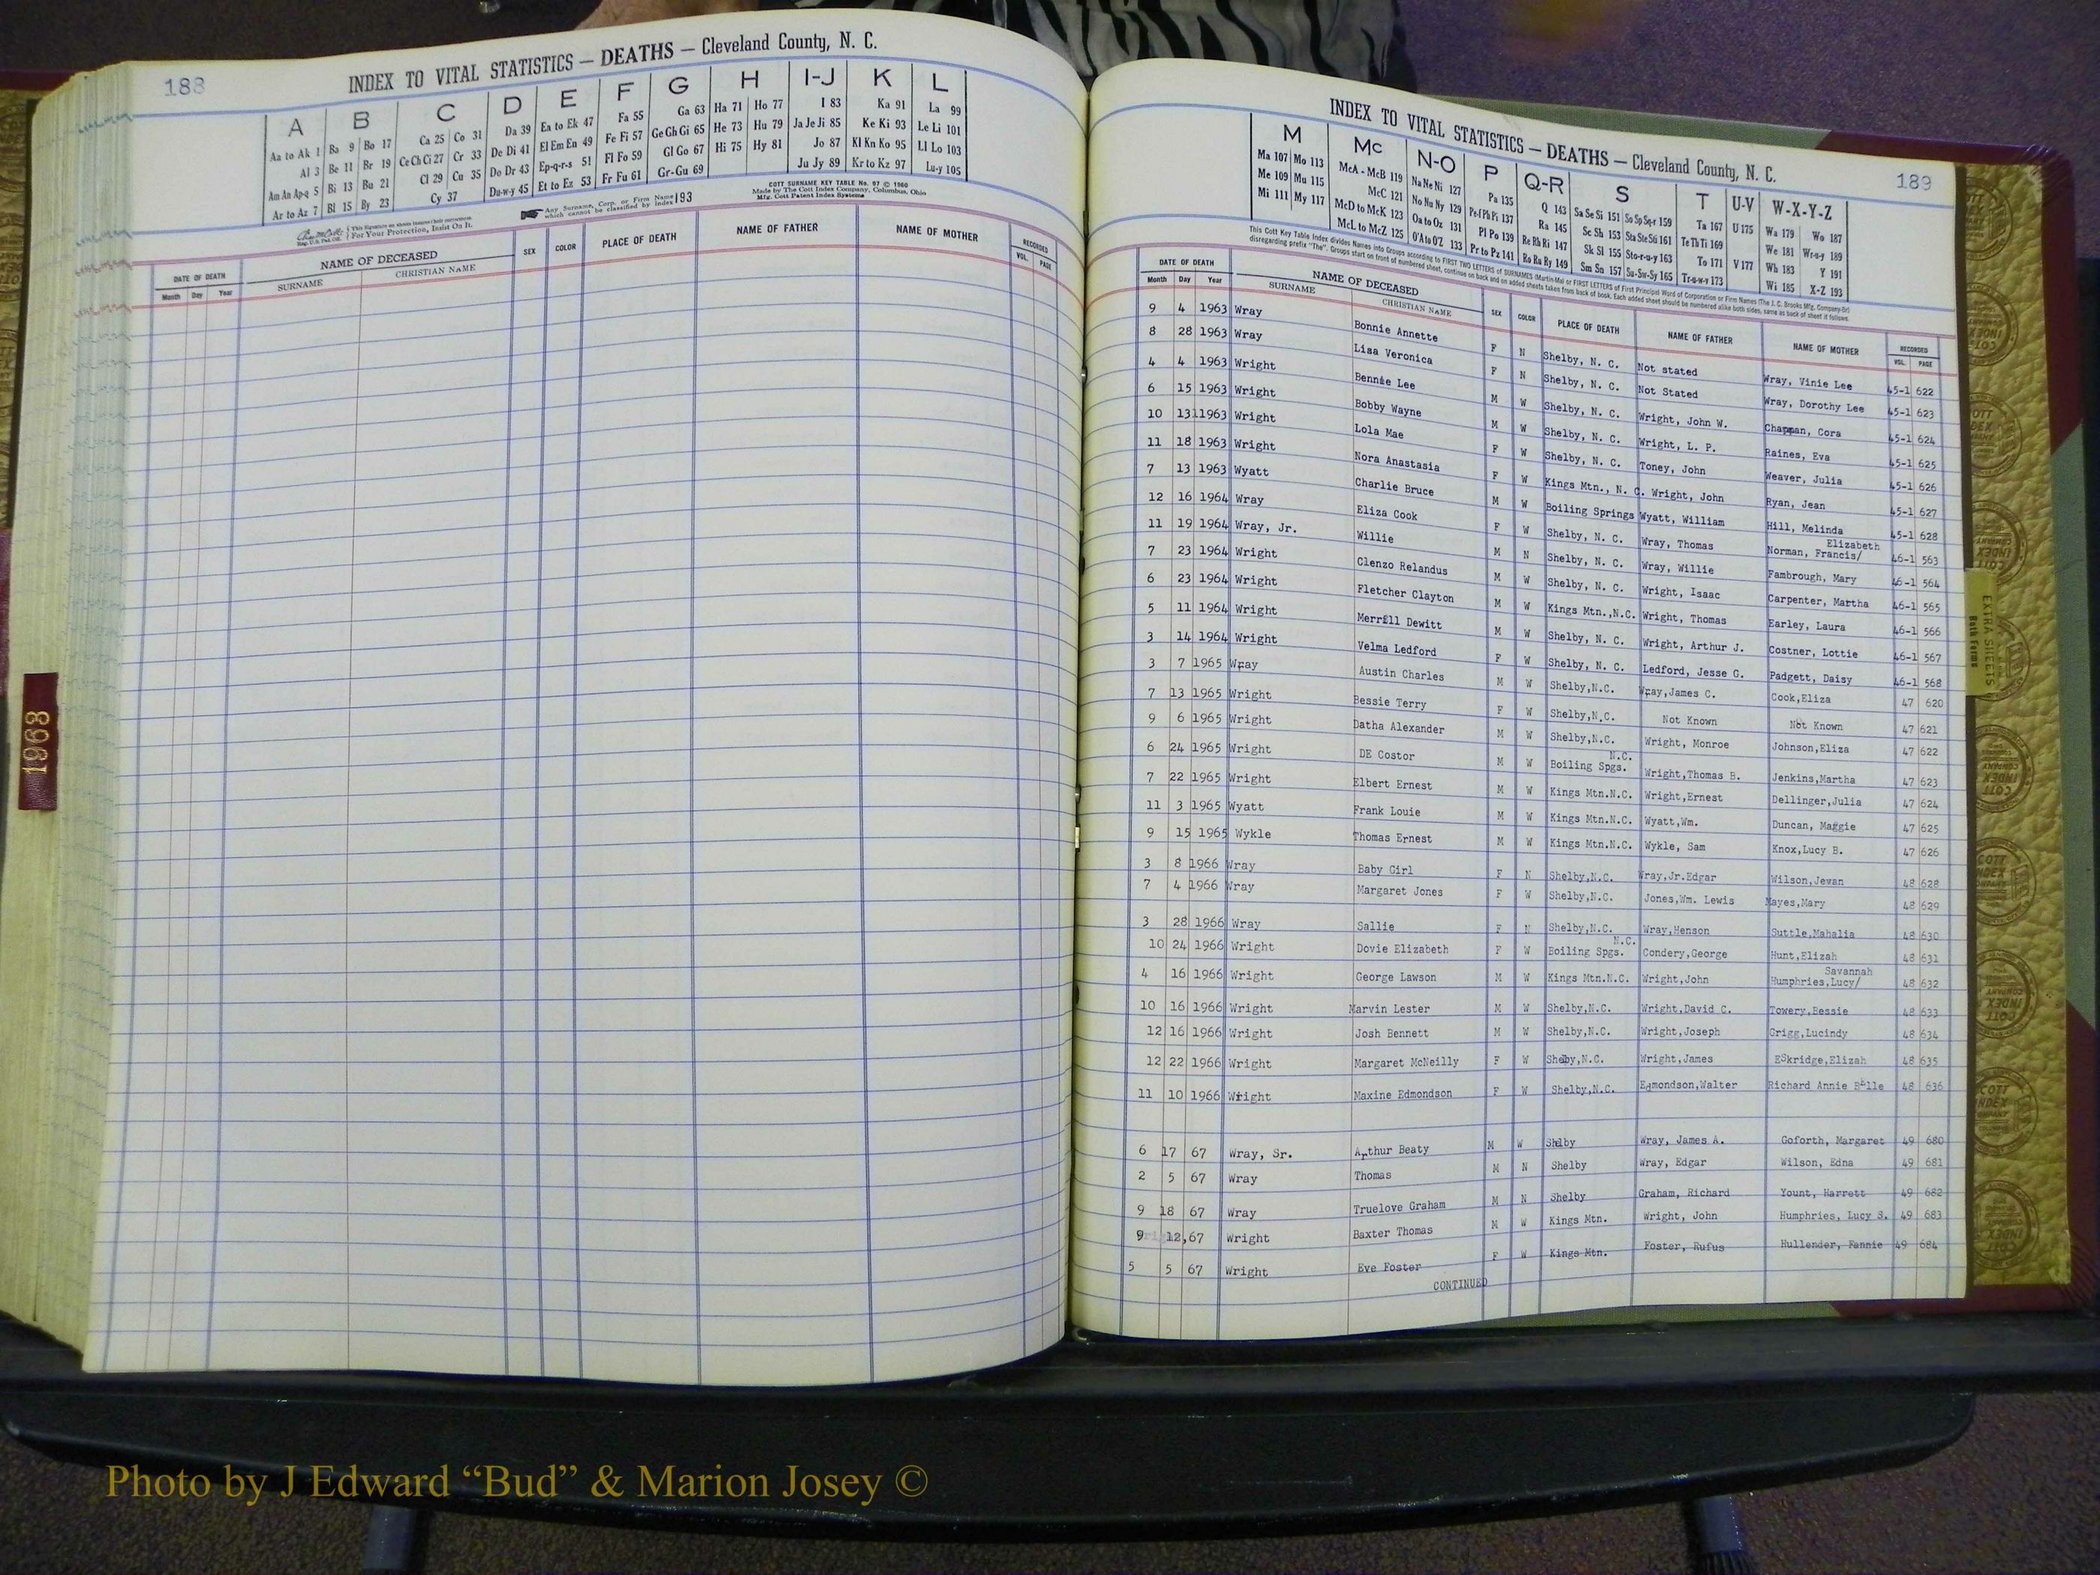 188
INDEX TO VITAL STATISTICS — DEATHS — Cleveland County, N. C.
A B C D E F G H I-J K L
Aa to Ak 1 Ba 9 Bo 17 Ca 25 Co 31 Da 39 Ea to Ek 47 Fa 55 Ga 63 Ha 71 Ho 77 I 83 Ka 91 La 99
Al 3 Be 11 Br 19 Ce Ch Ci 27 Cr 33 De Di 41 El Em En 49 Fe Fi 57 Ge Gh Gi 65 He 73 Hu 79 Ja Je Ji 85 Ke Ki 93 Le Li 101
Am An Ap-q 5 Bi 13 Bu 21 Cl 29 Cu 35 Do Dr 43 Ep-q-r-s 51 Fl Fo 59 Gl Go 67 Hi 75 Hy 81 Jo 87 Kl Kn Ko 95 Ll Lo 103
Ar to Az 7 Bl 15 By 23 Cy 37 Du-w-y 45 Et to Ez 53 Fr Fu 61 Gr-Gu 69 Ju Jy 89 Kr to Kz 97 Lu-y 105
Any Surname, Corp. or Firm Name which cannot be classified by index 193
COTT SURNAME KEY TABLE No. 97 © 1960
Made by The Cott Index Company, Columbus, Ohio
Mfg. Cott Patent Index Systems
For Your Protection, Insist On It.
DATE OF DEATH NAME OF DECEASED SEX COLOR PLACE OF DEATH NAME OF FATHER NAME OF MOTHER RECORDED
Month Day Year SURNAME CHRISTIAN NAME VOL. PAGE
1968
INDEX TO VITAL STATISTICS — DEATHS — Cleveland County, N. C.
189
M Mc N-O P Q-R S T U-V W-X-Y-Z
Ma 107 Mo 113 McA - McB 119 Na Ne Ni 127 Pa 135 Q 143 Sa Se Si 151 So Sp Sq-r 159 Ta 167 U 175 Wa 179 Wo 187
Me 109 Mu 115 McC 121 No Nu Ny 129 Pe-f Ph Pi 137 Ra 145 Sc Sh 153 Sta Ste Sti 161 Te Th Ti 169 We 181 Wr-u-y 189
Mi 111 My 117 McD to McK 123 Oa to Oz 131 Pl Po 139 Re Rh Ri 147 Sk Sl 155 Sto-r-u-y 163 To 171 V 177 Wh 183 Y 191
McL to McZ 125 O'A to O'Z 133 Pr to Pz 141 Ro Ru Ry 149 Sm Sn 157 Su-Sw-Sy 165 Tr-u-w-y 173 Wi 185 X-Z 193
DATE OF DEATH NAME OF DECEASED SEX COLOR PLACE OF DEATH NAME OF FATHER NAME OF MOTHER RECORDED
Month Day Year SURNAME CHRISTIAN NAME VOL. PAGE
9 4 1963 Wray Bonnie Annette F N Shelby, N. C. Not stated Wray, Vinie Lee 45-1 622
8 28 1963 Wray Lisa Veronica F N Shelby, N. C. Not Stated Wray, Dorothy Lee 45-1 623
4 4 1963 Wright Bennie Lee M W Shelby, N. C. Wright, John W. Chapman, Cora 45-1 624
6 15 1963 Wright Bobby Wayne M W Shelby, N. C. Wright, L. P. Raines, Eva 45-1 625
10 1311963 Wright Lola Mae F W Shelby, N. C. Toney, John Weaver, Julia 45-1 626
11 18 1963 Wright Nora Anastasia F W Kings Mtn., N. C. Wright, John Ryan, Jean 45-1 627
7 13 1963 Wyatt Charlie Bruce M W Boiling Springs Wyatt, William Hill, Melinda 45-1 628
12 16 1964 Wray Eliza Cook F W Shelby, N. C. Wray, Thomas Norman, Francis/ Elizabeth 46-1 563
11 19 1964 Wray, Jr. Willie M N Shelby, N. C. Wray, Willie Fambrough, Mary 46-1 564
7 23 1964 Wright Clenzo Relandus M W Shelby, N. C. Wright, Isaac Carpenter, Martha 46-1 565
6 23 1964 Wright Fletcher Clayton M W Kings Mtn.,N.C. Wright, Thomas Earley, Laura 46-1 566
5 11 1964 Wright Merrill Dewitt M W Shelby, N. C. Wright, Arthur J. Costner, Lottie 46-1 567
3 14 1964 Wright Velma Ledford F W Shelby, N. C. Ledford, Jesse G. Padgett, Daisy 46-1 568
3 7 1965 Wray Austin Charles M W Shelby,N.C. Wray,James C. Cook,Eliza 47 620
7 13 1965 Wright Bessie Terry F W Shelby,N.C. Not Known Not Known 47 621
9 6 1965 Wright Datha Alexander M W Shelby,N.C. Wright, Monroe Johnson,Eliza 47 622
6 24 1965 Wright DE Costor M W Boiling Spgs. N.C. Wright,Thomas B. Jenkins,Martha 47 623
7 22 1965 Wright Elbert Ernest M W Kings Mtn.N.C. Wright,Ernest Dellinger,Julia 47 624
11 3 1965 Wyatt Frank Louie M W Kings Mtn.N.C. Wyatt,Wm. Duncan, Maggie 47 625
9 15 1965 Wykle Thomas Ernest M W Kings Mtn.N.C. Wykle, Sam Knox,Lucy B. 47 626
3 8 1966 Wray Baby Girl F N Shelby,N.C. Wray,Jr.Edgar Wilson,Jewan 48 628
7 4 1966 Wray Margaret Jones F W Shelby,N.C. Jones,Wm. Lewis Mayes,Mary 48 629
3 28 1966 Wray Sallie F N Shelby,N.C. Wray,Henson Suttle,Mahalia 48 630
10 24 1966 Wright Dovie Elizabeth F W Boiling Spgs. N.C. Condery,George Hunt,Elizah 48 631
4 16 1966 Wright George Lawson M W Kings Mtn.N.C. Wright,John Humphries,Lucy/ Savannah 48 632
10 16 1966 Wright Marvin Lester M W Shelby,N.C. Wright,David C. Towery,Bessie 48 633
12 16 1966 Wright Josh Bennett M W Shelby,N.C. Wright,Joseph Grigg,Lucindy 48 634
12 22 1966 Wright Margaret McNeilly F W Shelby,N.C. Wright,James ESkridge,Elizah 48 635
11 10 1966 Wright Maxine Edmondson F W Shelby,N.C. Edmondson,Walter Richard Annie Belle 48 636
6 17 67 Wray, Sr. Arthur Beaty M W Shelby Wray, James A. Goforth, Margaret 49 680
2 5 67 Wray Thomas M N Shelby Wray, Edgar Wilson, Edna 49 681
9 18 67 Wray Truelove Graham M N Shelby Graham, Richard Yount, Harrett 49 682
9 12,67 Wright Baxter Thomas M W Kings Mtn. Wright, John Humphries, Lucy S. 49 683
5 5 67 Wright Eve Foster F W Kings Mtn. Foster, Rufus Hullender, Fannie 49 684
CONTINUED
EXTRA SHEETS
Both Forms
Photo by J Edward “Bud” & Marion Josey ©